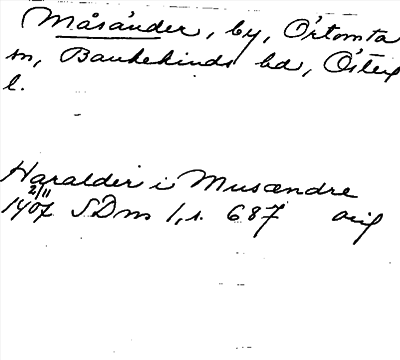 Måsänder, by, Örtomta
sn, Bankekinds hd, Östg
l.
Haralder i Musændre
2/11
1407 SDns 1, s. 687 orig